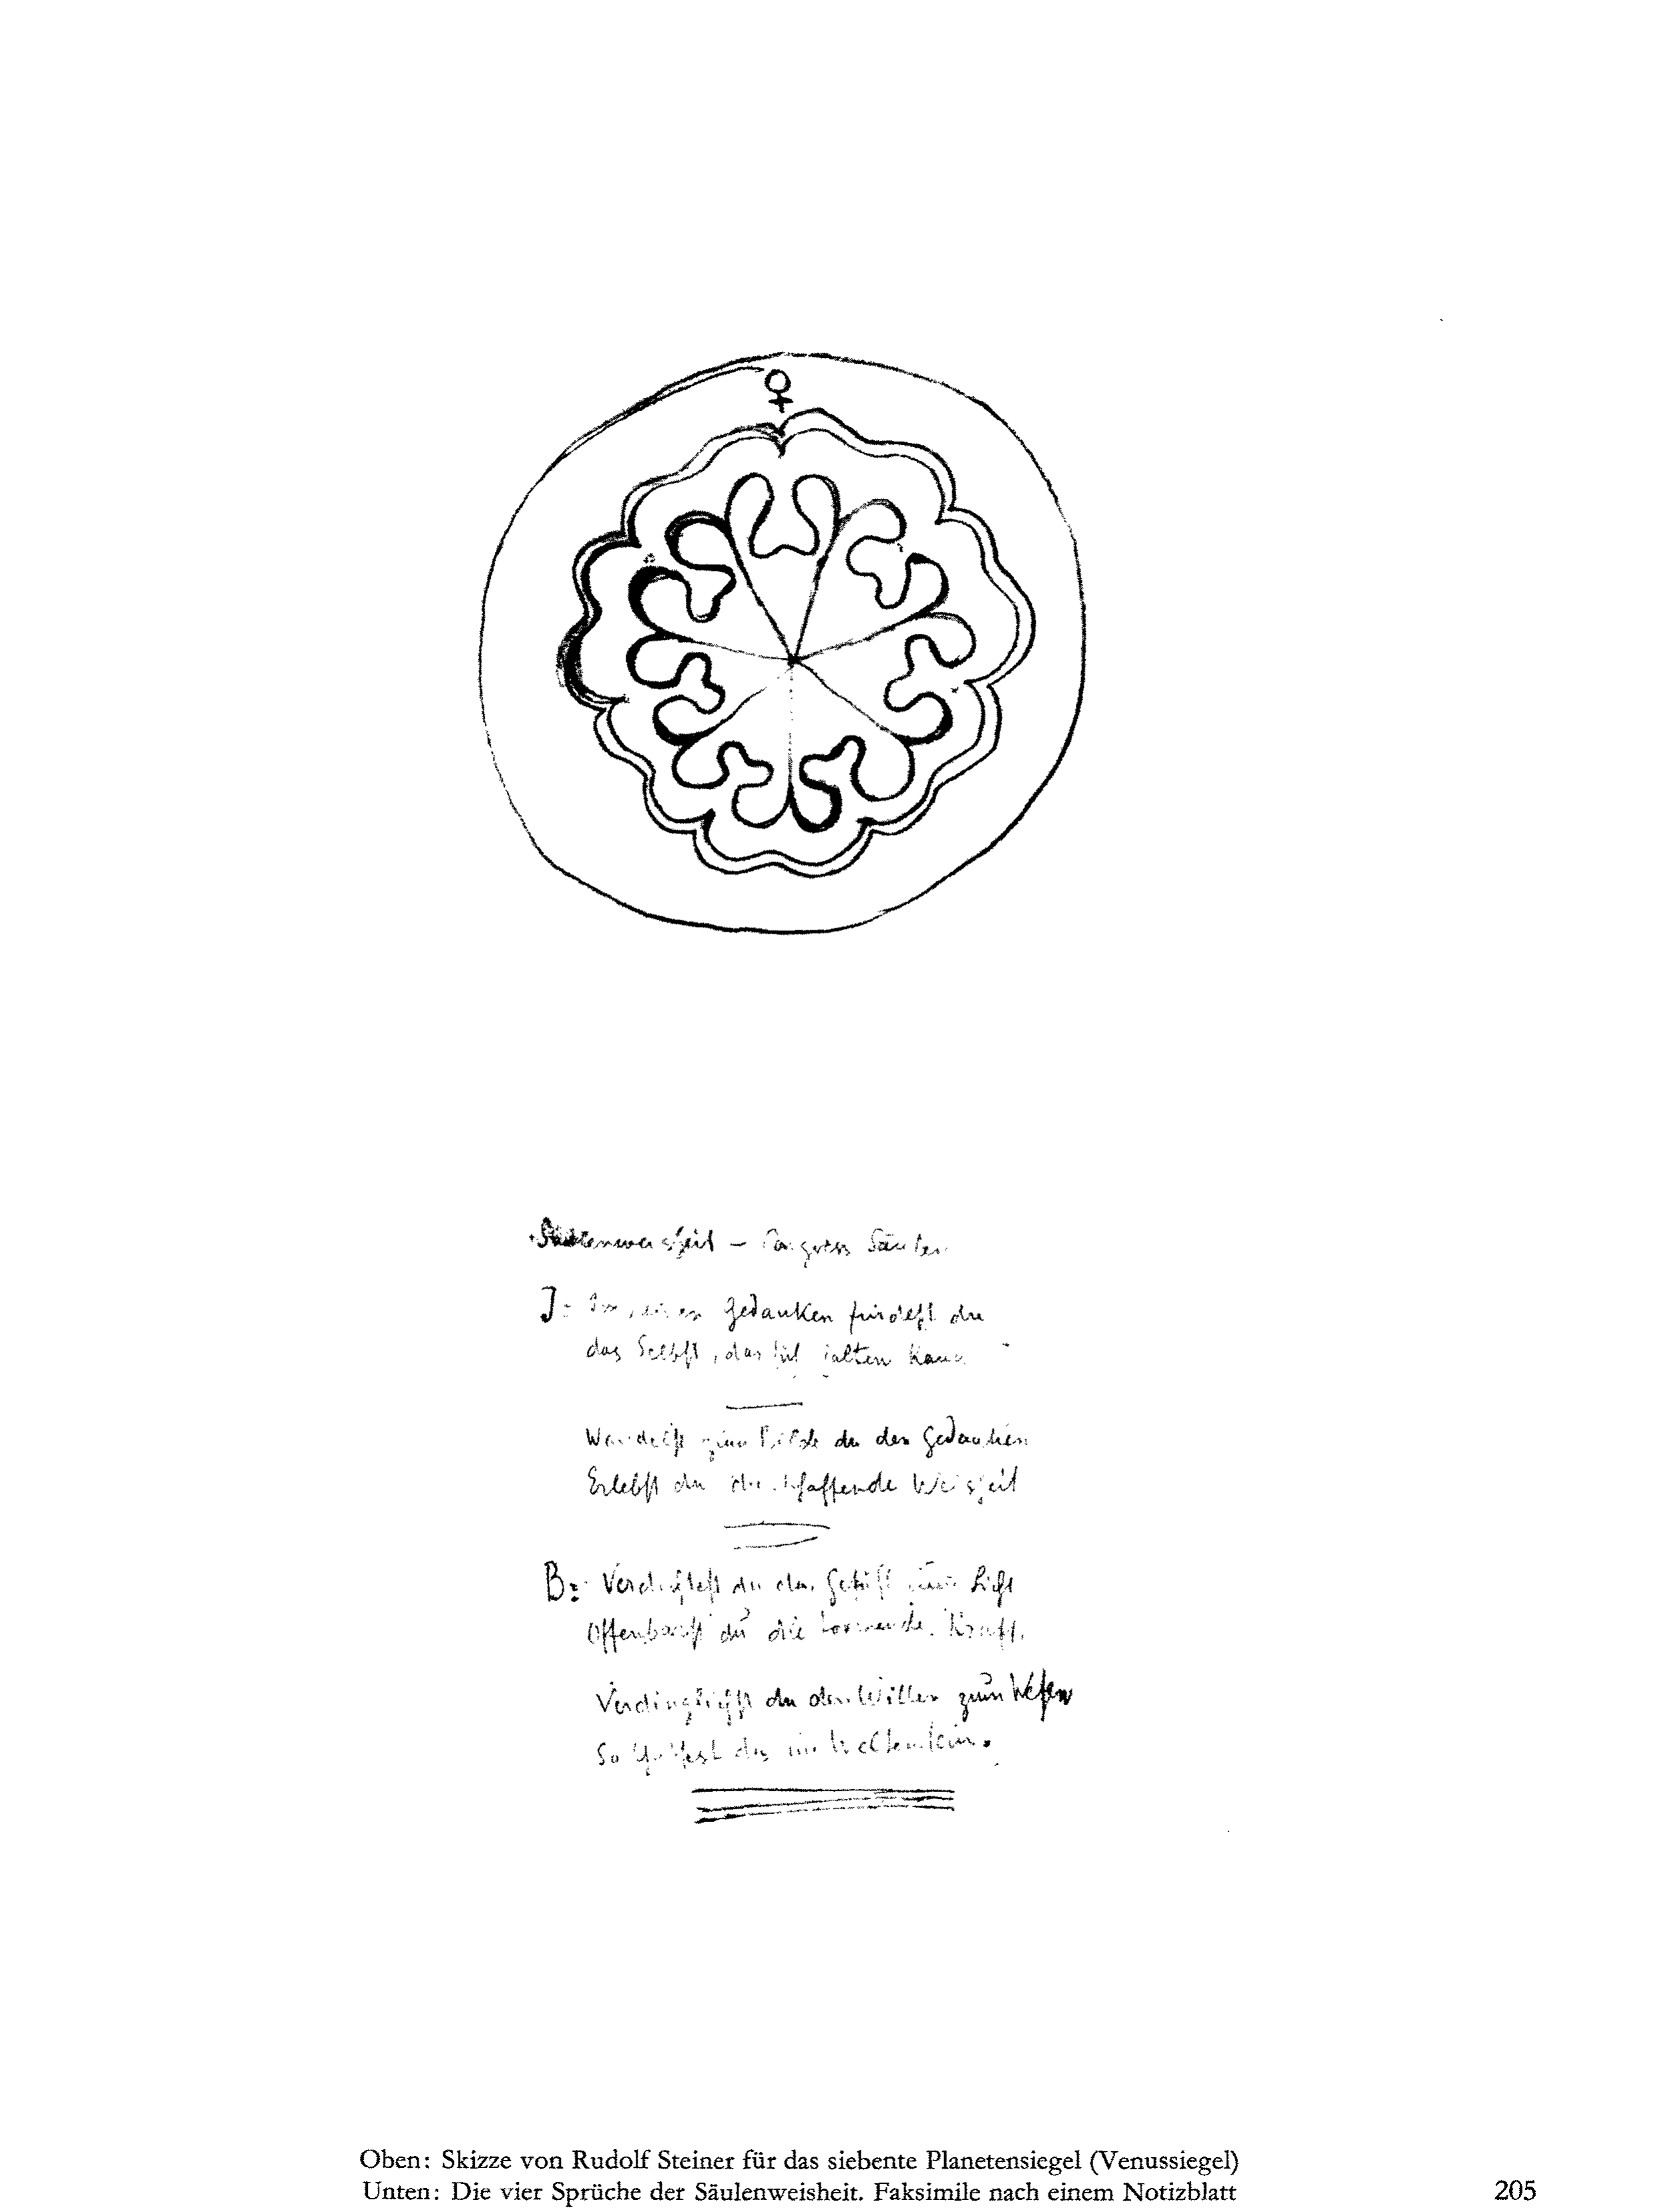 ♀
Säulenweisheit – Congress Säulen
J: Im reinen Gedanken findest du
das Selbst, das sich halten kann
Wandelst zum Bilde du den Gedanken
Erlebst du die schaffende Weisheit
B: Verdichtest du das Gefühl zum Licht
Offenbarst du die formende Kraft.
Verdinglichst du den Willen zum Wesen
So du im Weltensein.
Oben: Skizze von Rudolf Steiner für das siebente Planetensiegel (Venussiegel)
Unten: Die vier Sprüche der Säulenweisheit. Faksimile nach einem Notizblatt
205